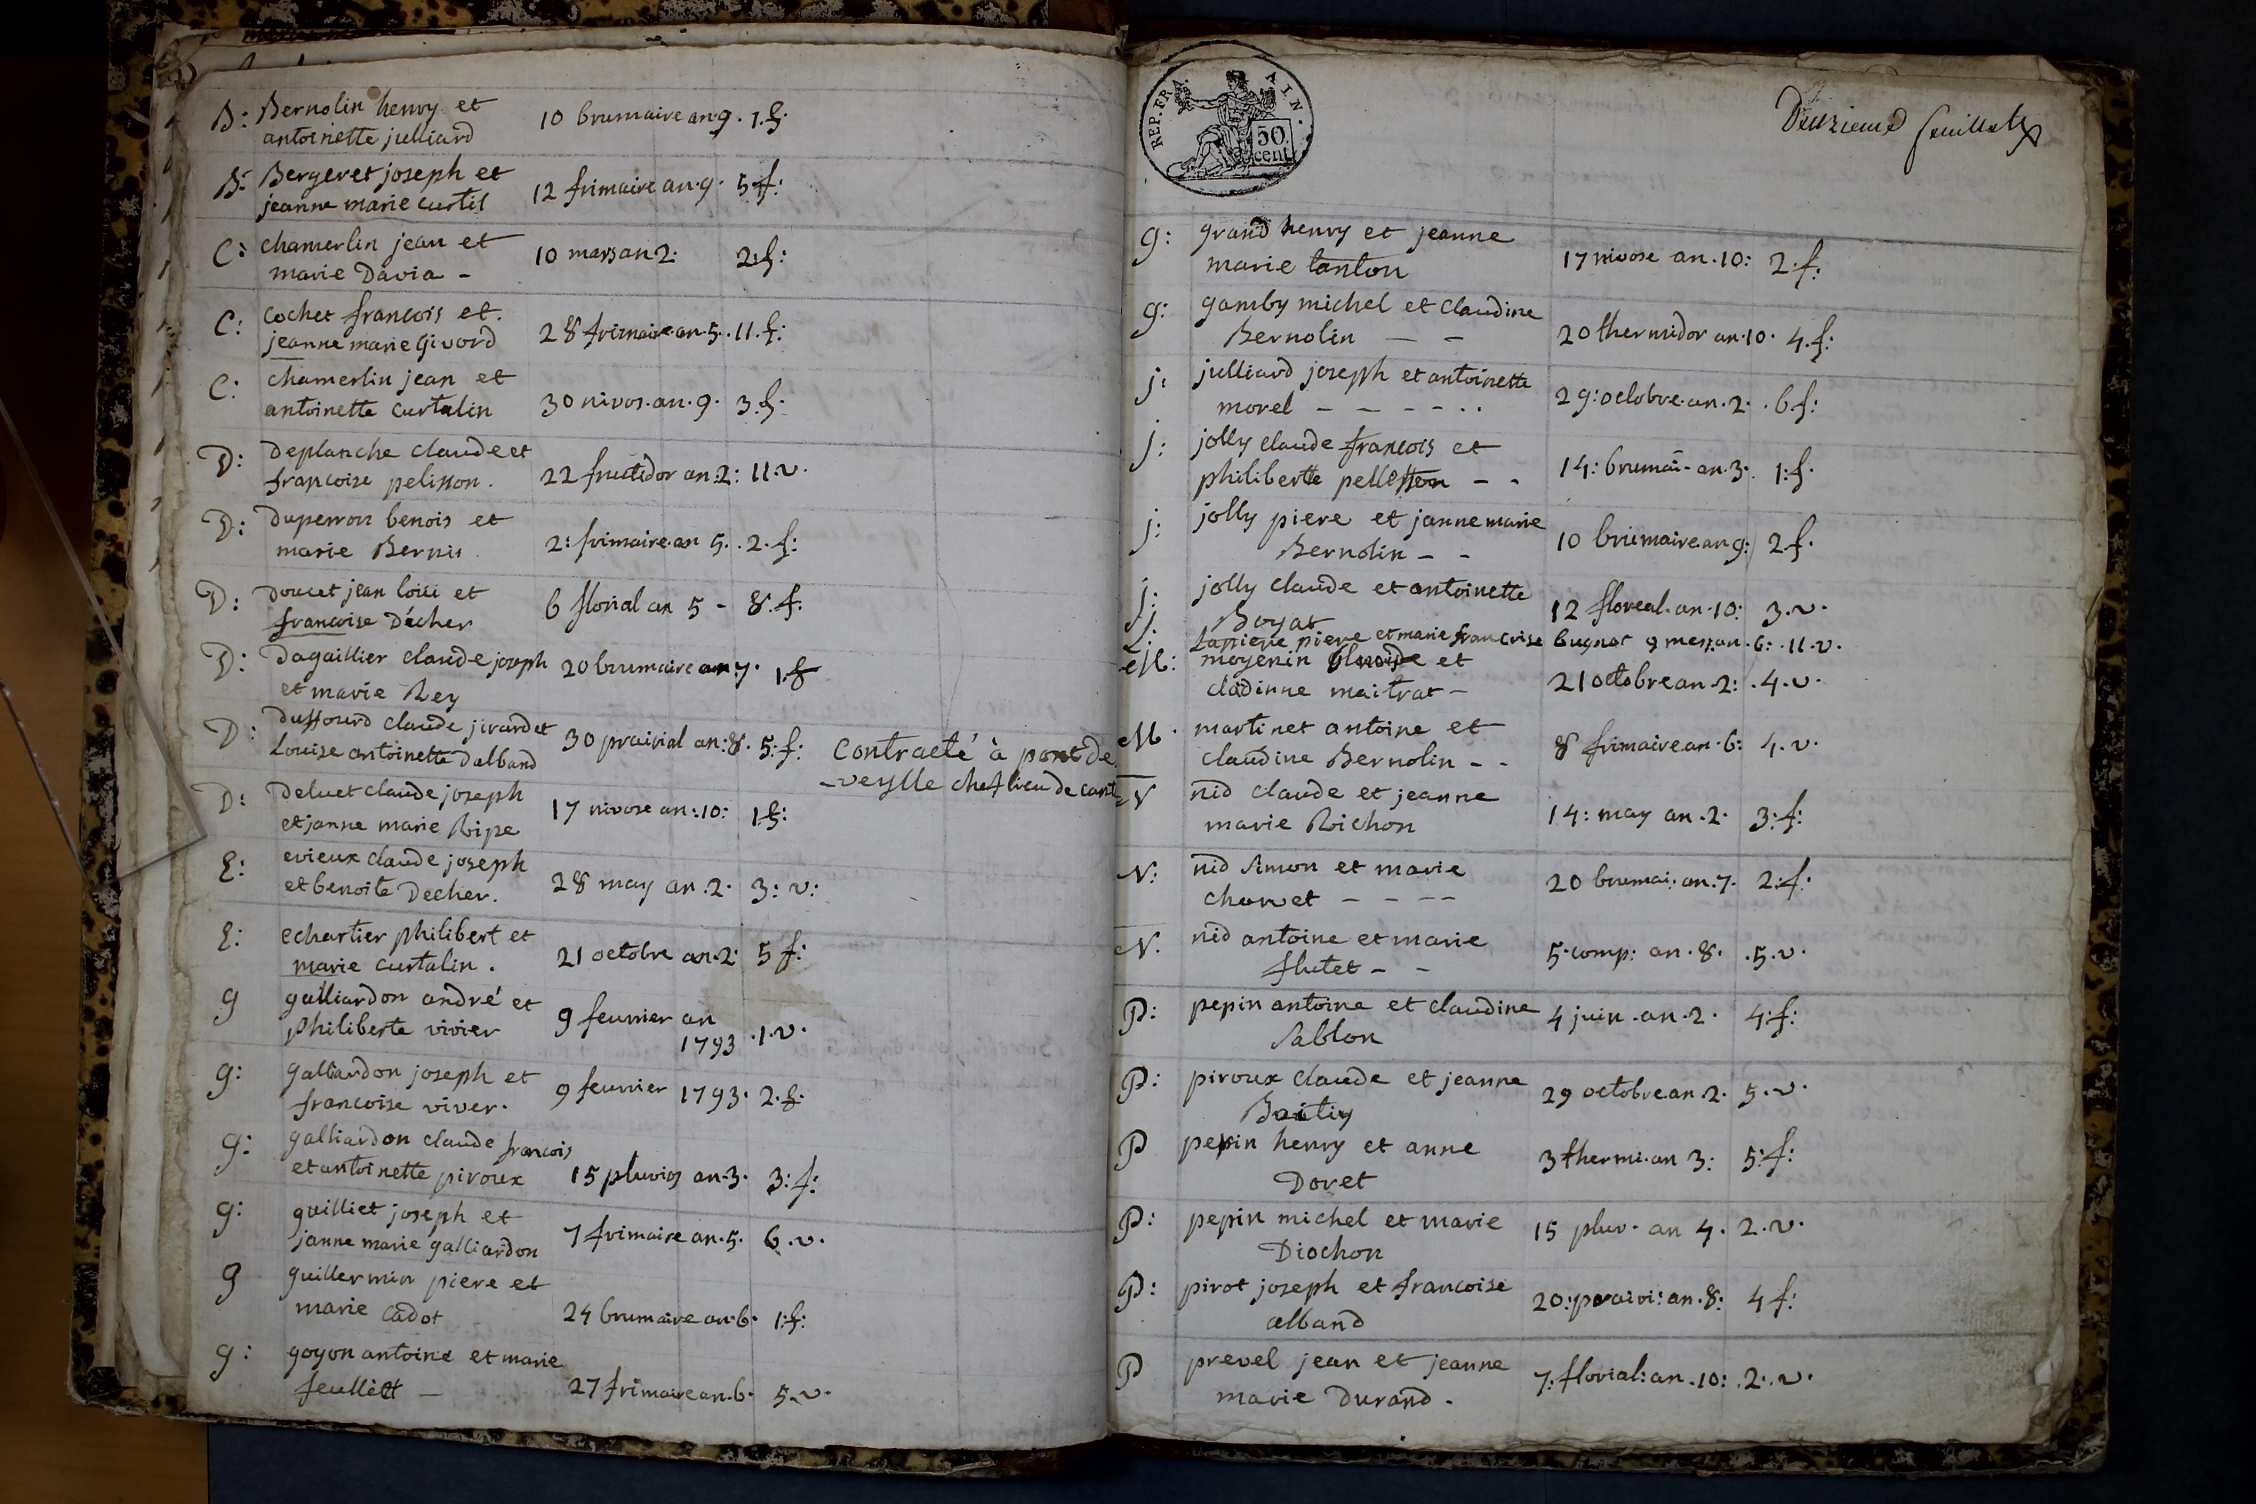 B: Bernolin henry et
antoinette julliard 10 brumaire an 9. 1.f.
B: Bergeret joseph et
jeanne marie curtil 12 frimaire an.9. 5.f:
C: chamerlin jean et
marie Davia - 10 mars an 2. 2.f:
C: cochet francois et.
jeanne marie Givord 28 frimaire.an.5. 11.f:
C: chamerlin jean et
antoinette curtalin 30 nivos.an.9. 3.f.
D: Deplanche claude et
francoise pelisson. 22 fructidor an:2: 11.v.
D: Duperron benois et
marie Bernis 2: frimaire.an 5. .2.f:
D: Doucet jean loüi et
francoise Décher 6 florial an 5 - 8.f.
D: Dagaillier claude joseph
et marie Rey 20 brumaire an.7. 1.f
D: Duffourd claude jirard et
Louise antoinette Dalband 30 prairial an:8. 5:f: Contracté à pont de
-veylle chef lieu de cant
D: Deluet claude joseph
et janne marie Ripe 17 nivose an:.10: 1.f:
E: evieux claude joseph
et benoite Decher. 28 may an.2. 3: v:
E: echartier philibert et
marie curtalin. 21 octobre an.2. 5 f:
g galliardon andré et
philiberte vivier 9 feuvrier an
1793 .1.v.
g: galliardon joseph et
francoise viver. 9 feuvrier 1793. 2.f.
g: galliardon claude francois
et antoinette piroux 15 pluvios an.3. 3:f:
g: guilliet joseph et
janne marie galliardon 7 frimaire an.5. 6.v.
g guillermin piere et
marie cadot 24 brumaire an.6. 1:f:
g: goyon antoine et marie
feullett - 27 frimaire an.6. 5.v.
REP. FRA. 50 cent. AIN.
Deuzieme feuillet
g: grand henry et jeanne
marie tanton 17 nivose an.10: 2.f:
g: gamby michel et claudine
Bernolin - - 20 thermidor an.10. 4.f:
j: julliard joseph et antoinette
morel - - - - . . 29:octobre.an.2. .6.f:
j: jolly claude francois et
philiberte pellesson - - 14: brumai- an.3. 1:f.
j: jolly piere et janne marie
Bernolin - - 10 brumaire an 9: 2f.
j: jolly claude et antoinette
Boyat 12 floreal.an.10: 3.v.
L: Lapiere piere et marie francoise bugnot 9 mess.an.6: .11.v.
M: moyenin claude et
cladinne maitrat - 21 octobre an.2: .4.v.
M. martinet antoine et
claudine Bernolin - - 8 frimaire an.6: 4.v.
N nid claude et jeanne
marie Richon 14: may an.2. 3:f:
N: nid simon et marie
charvet - - - - 20 brumai: an.7. 2:f.
N. nid antoine et marie
flutet - - 5.comp: an.8. .5.v.
P: pepin antoine et claudine
sablon 4 juin.an.2. 4:f:
P: piroux claude et jeanne
29 octobre an.2. 5.v.
P pepin henry et anne
Doret 3 thermi.an 3: 5:f:
P: pepin michel et marie
Diochon 15 pluv. an 4. 2.v.
P: pirot joseph et francoise
alband 20:prairi:an.8: 4 f:
P prevel jean et jeanne
marie Durand. 7: florial:an.10: .2.v.